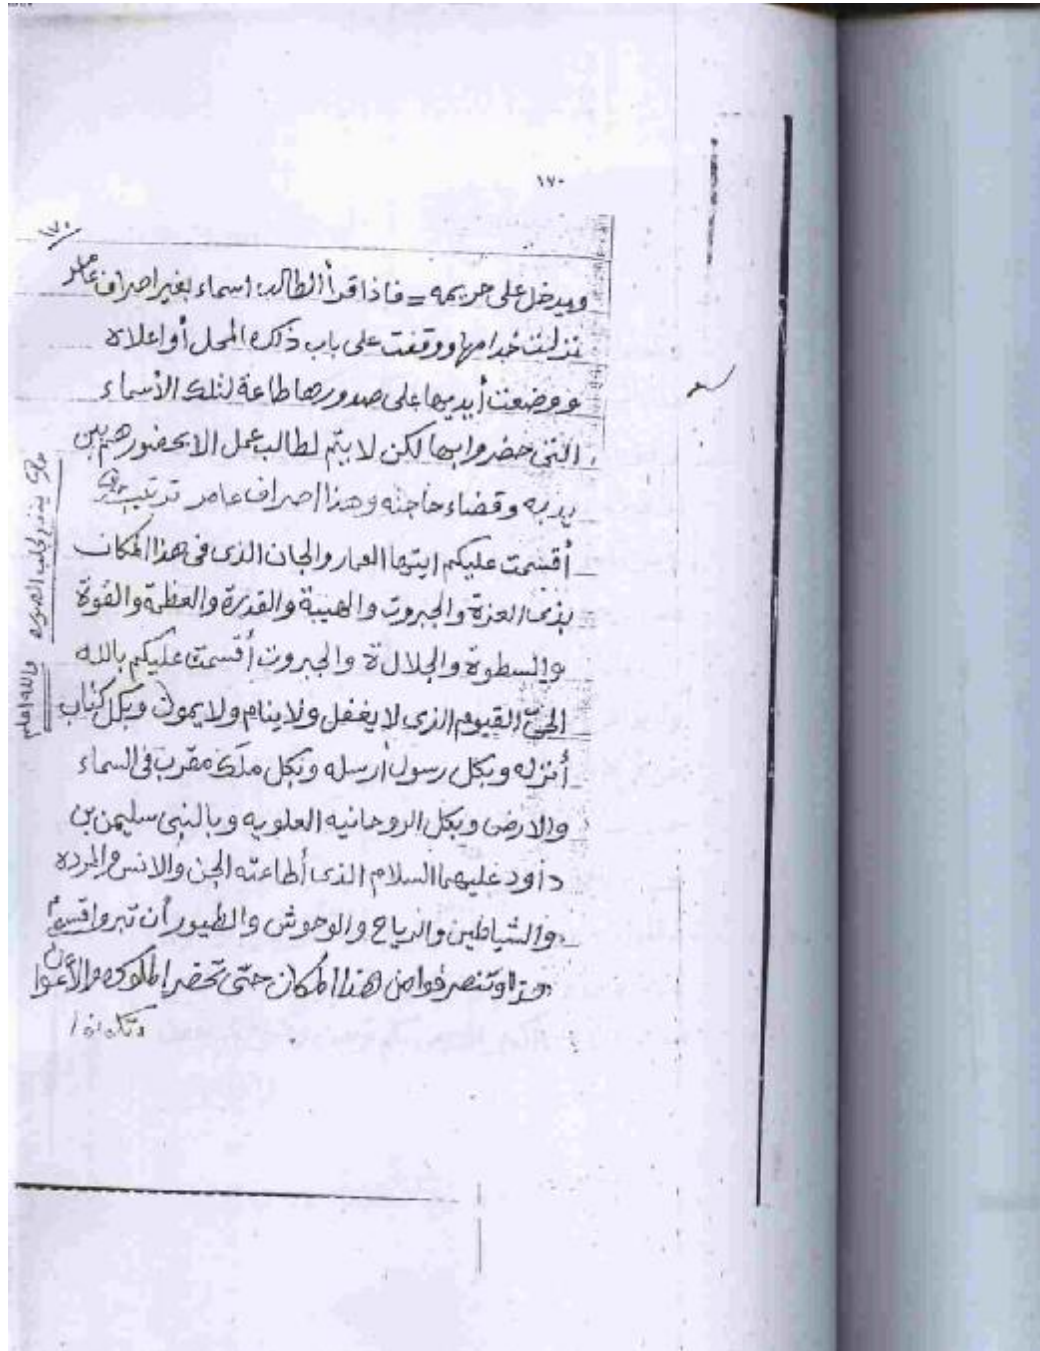 ١٧٠
١٧٠
ويدخل على حريمه = فاذا قرأ الطالب اسماء بغير اصراف عامر
نزلت خدامها ووقفت على باب ذكره المحل أو اعلاه
ووضعت أيديها على صدورها طاعة لتلك الأسماء
التى حضروا بها لكن لا يتم لطالب عمل الا بحضورهم بين
يديه وقضاء حاجته وهذا اصراف عامر ترتيب
أقسمت عليكم ايتها العمار والجان الذى فى هذا المكان
بذى العزة والجبروت والهيبة والقدرة والعظمة والقوة
والسطوة والجلالة والجبروت أقسمت عليكم بالله
الحىّ القيوم الذى لا يغفل ولا ينام ولا يموت وبكل كتاب
أنزله وبكل رسول أرسله وبكل ملك مقرب فى السماء
والارض وبكل الروحانيه العلويه وبالنبى سليمن بن
داود عليهما السلام الذى أطاعته الجن والانس والمرده
والشياطين والرياح والوحوش والطيور أن تبروا قسمى
هذا وتنصرفوا من هذا المكان حتّى تحضر الملوك والأعوان
وتكونوا
ينفع لجلب الصوره
والله اعلم